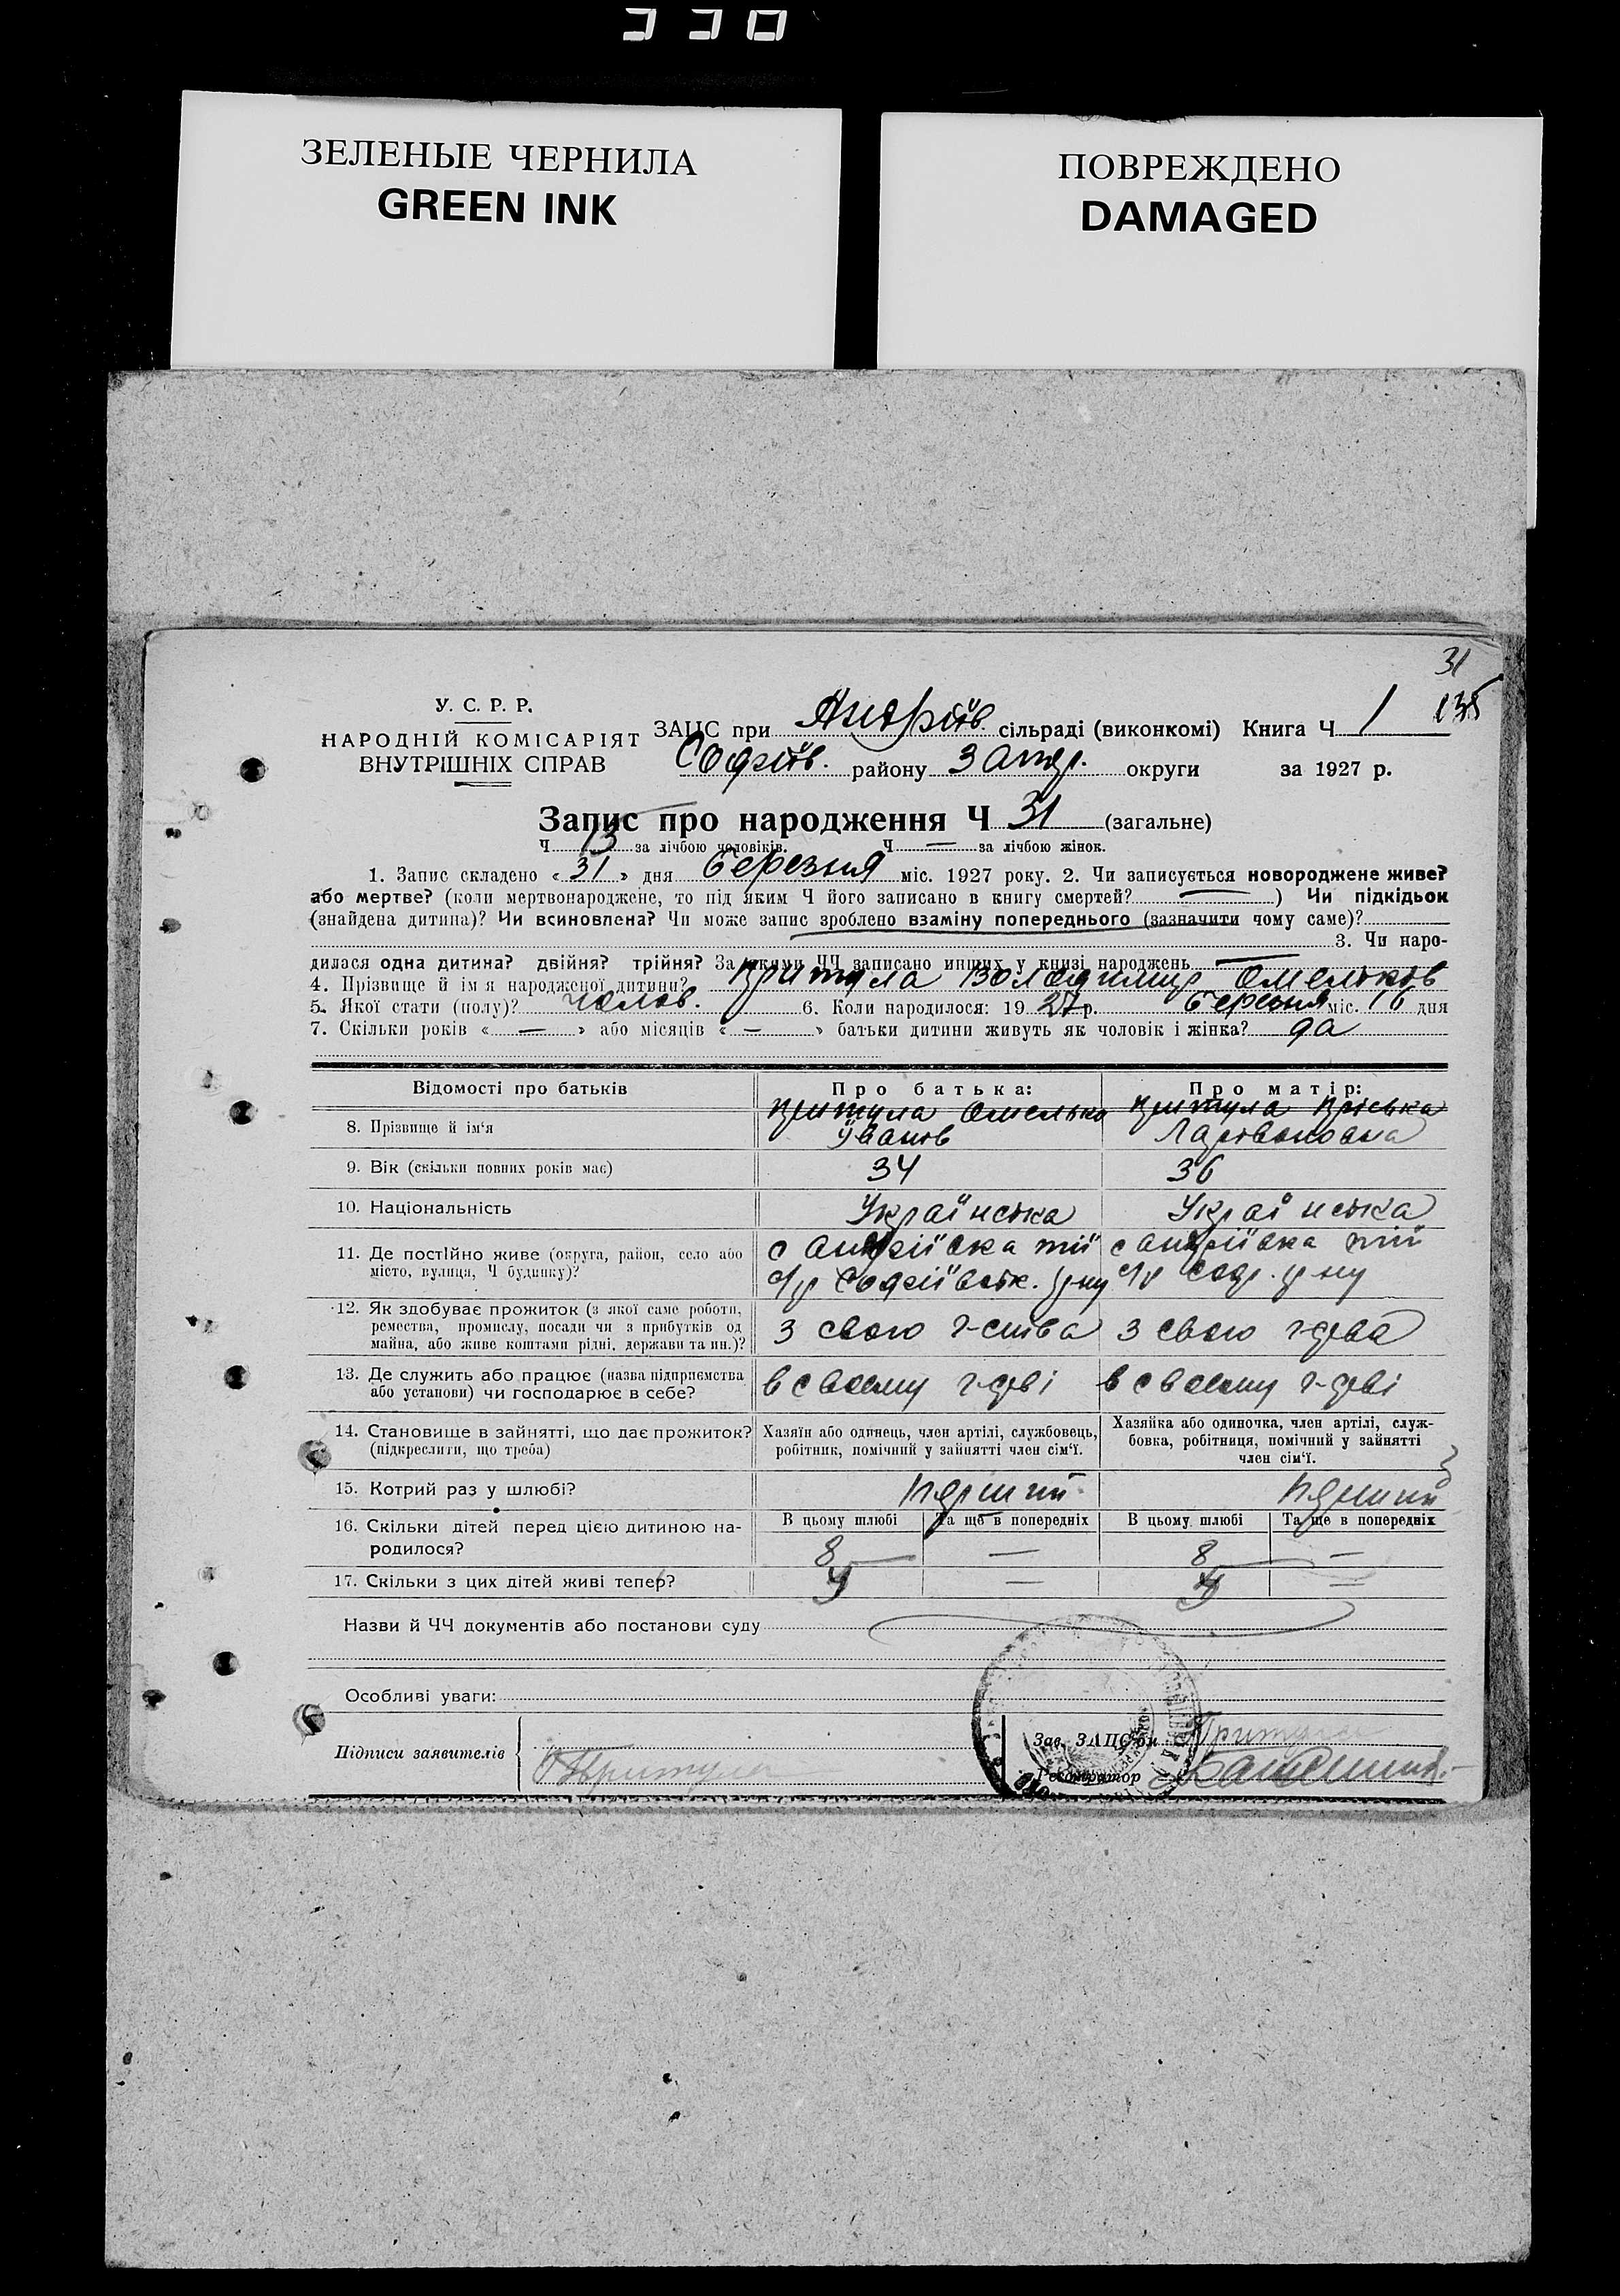 330
ЗЕЛЕНЫЕ ЧЕРНИЛА
GREEN INK
ПОВРЕЖДЕНО
DAMAGED
31
135
У. С. Р. Р.
НАРОДНІЙ КОМІСАРІЯТ
ВНУТРІШНІХ СПРАВ
ЗАЦС при Андріїв. сільраді (виконкомі) Книга Ч 1
Софіїв. району Запор. округи за 1927 р.
Запис про народження Ч 31 (загальне)
Ч 13 за лічбою чоловіків. Ч — за лічбою жінок.
1. Запис складено « 31 » дня березня міс. 1927 року. 2. Чи записується новороджене живе?
або мертве? (коли мертвонароджене, то під яким Ч його записано в книгу смертей? — ) Чи підкідьок
(знайдена дитина)? Чи всиновлена? Чи може запис зроблено взаміну попереднього (зазначити чому саме)?
3. Чи наро-
дилася одна дитина? двійня? трійня? За якими ЧЧ записано инших у книзі народжень —
4. Прізвище й ім'я народженої дитини? Притула Володимир Омельков
5. Якої стати (полу)? чолов. 6. Коли народилося: 19 27 р. березня міс. 16 дня
7. Скільки років « — » або місяців « — » батьки дитини живуть як чоловік і жінка? да
Відомості про батьків Про батька: Про матір:
8. Прізвище й ім'я Притула Омелько Притула Пріська
Іванів Ларівоновна
9. Вік (скільки повних років має) 34 36
10. Національність Українська Українська
11. Де постійно живе (округа, район, село або с Андріївка тії с Андріївка тії
місто, вулиця, Ч будинку)? с/р Софіївськ. р-ну с/р Соф. р-ну
12. Як здобуває прожиток (з якої саме роботи,
ремества, промислу, посади чи з прибутків од з свого г-ства з свого г-дова
майна, або живе коштами рідні, держави та ин.)?
13. Де служить або працює (назва підприємства в своему г-дві в своему г-дві
або установи) чи господарює в себе?
14. Становище в зайнятті, що дає прожиток? Хазяїн або одинець, член артілі, службовець, Хазяйка або одиночка, член артілі, служ-
(підкреслити, що треба) робітник, помічний у зайнятті член сім'ї. бовка, робітниця, помічний у зайнятті
член сім'ї.
15. Котрий раз у шлюбі? перший перший
16. Скільки дітей перед цією дитиною на- В цьому шлюбі Та ще в попередніх В цьому шлюбі Та ще в попередніх
родилося? 8 — 8 —
17. Скільки з цих дітей живі тепер? — —
Назви й ЧЧ документів або постанови суду
Особливі уваги:
Підписи заявителів Притула
Зав. ЗАЦС'ом Притула
Реєстратор